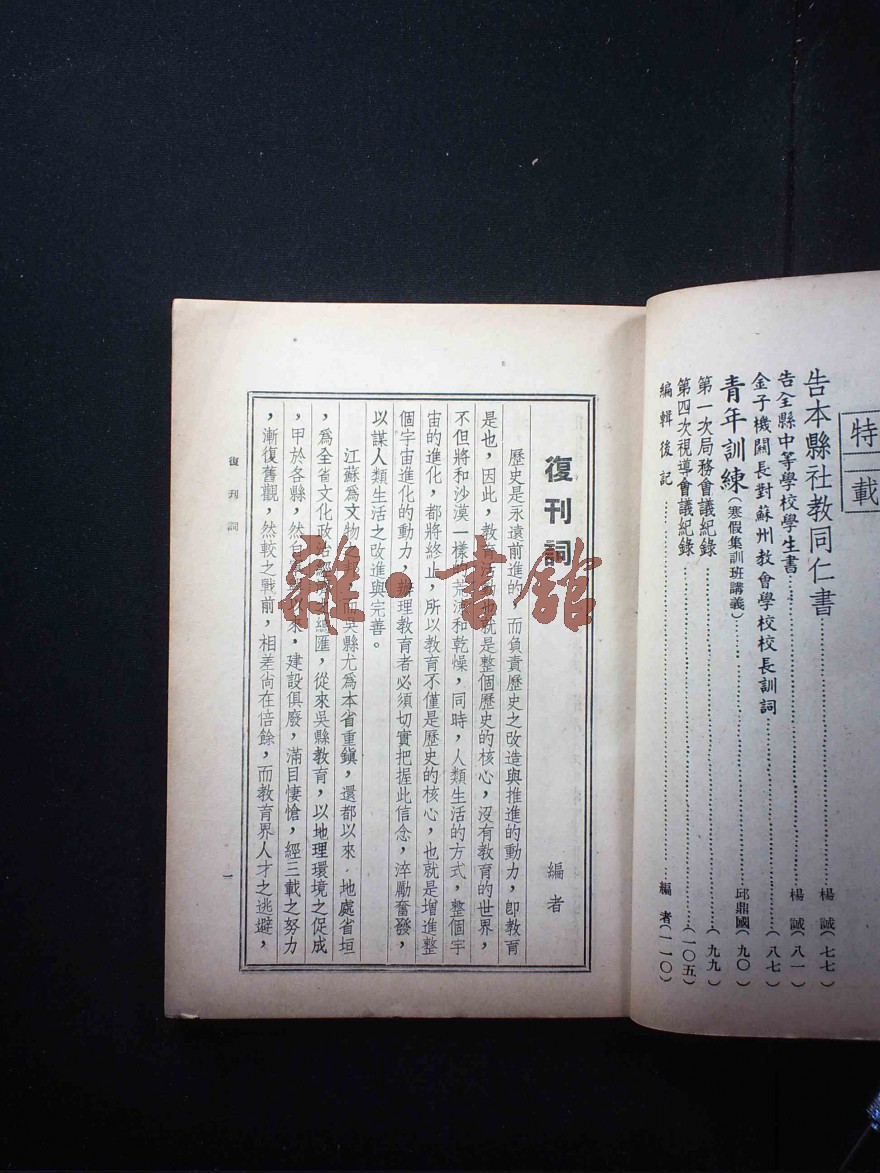 特載
告本縣社教同仁書……楊誠(七七)
告全縣中等學校學生書……楊誠(八一)
金子機關長對蘇州教會學校校長訓詞……(八七)
青年訓練(寒假集訓班講義)……邱鼎國(九〇)
第一次局務會議紀錄……(九九)
第四次視導會議紀錄……(一〇五)
編輯後記……編者(一一〇)
復刊詞
編者
歷史是永遠前進的,而負責歷史之改造與推進的動力,卽教育
是也,因此,教育也就是整個歷史的核心,沒有教育的世界,
不但將和沙漠一樣荒涼和乾燥,同時,人類生活的方式,整個宇
宙的進化,都將終止,所以教育不僅是歷史的核心,也就是增進整
個宇宙進化的動力,辦理教育者必須切實把握此信念,淬勵奮發,
以謀人類生活之改進與完善。
江蘇爲文物,而吳縣尤爲本省重鎭,還都以來,地處省垣
,爲全省文化政治經總匯,從來吳縣教育,以地理環境之促成
,甲於各縣,然自以來,建設俱廢,滿目悽愴,經三載之努力
,漸復舊觀,然較之戰前,相差尙在倍餘,而教育界人才之逃避,
復刊詞
一
雜·書館